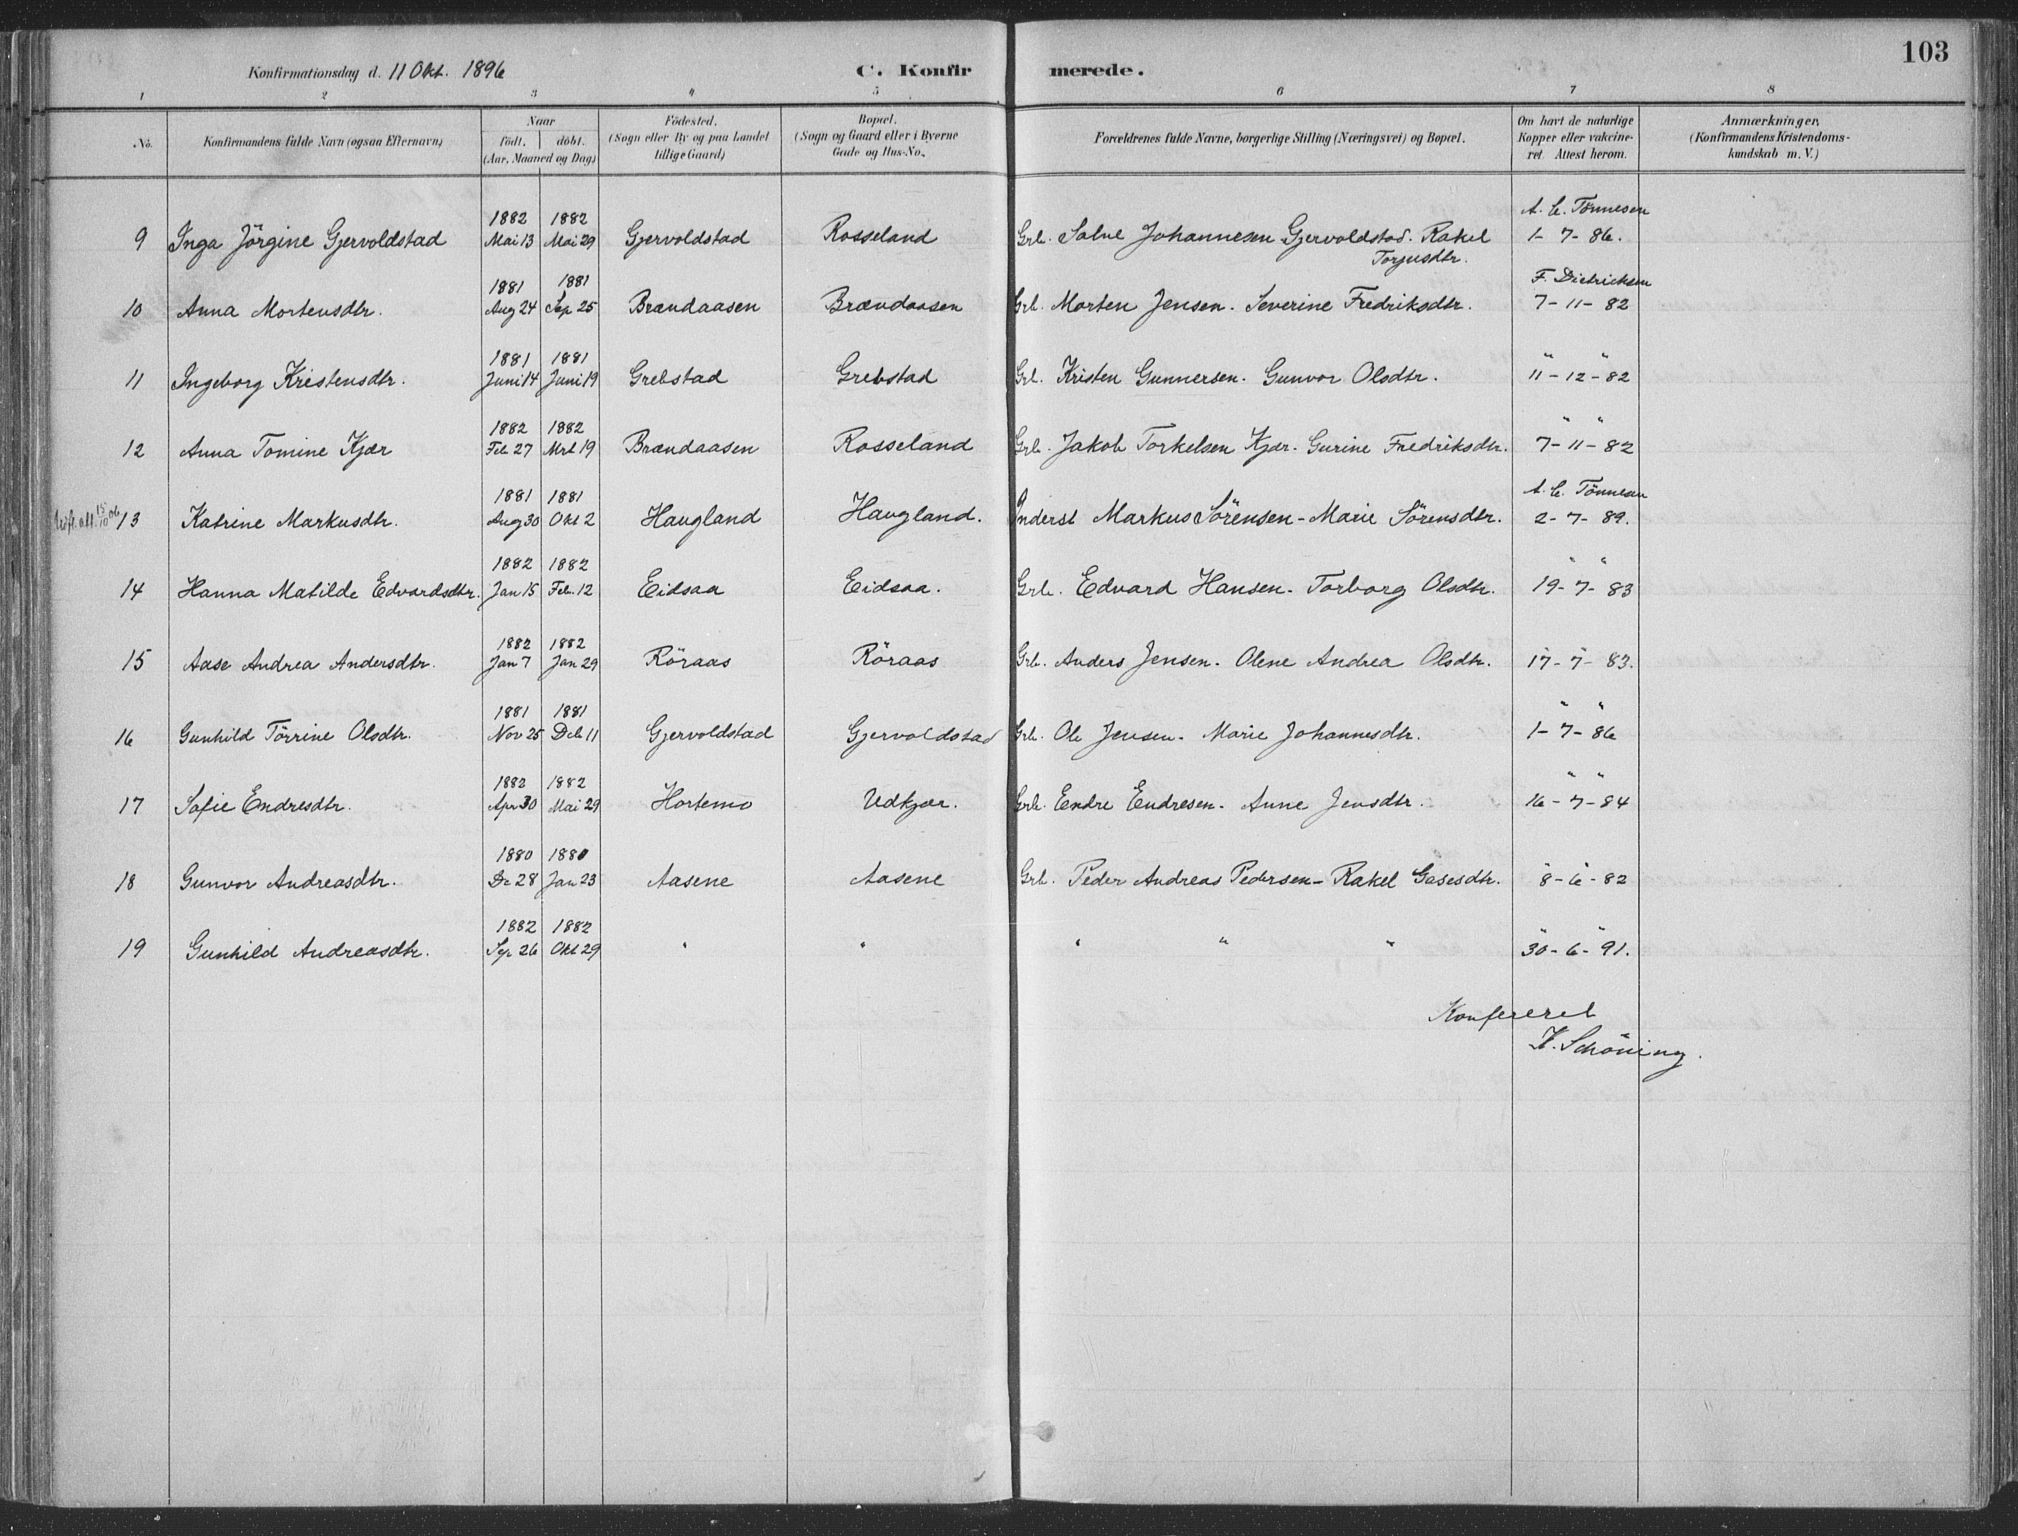 103
Konfirmationsdag d. 11 Okt. 1896 C. Konfirmerede.
1 2 3 4 5 6 7 8
No. Konfirmandens fulde Navn (ogsaa Efternavn) Naar födt. döbt. (Aar, Maaned og Dag) Födested. (Sogn eller By og paa Landet tillige Gaard) Bopæl. (Sogn og Gaard eller i Byerne Gade og Hus-No. Forældrenes fulde Navne, borgerlige Stilling (Næringsvei) og Bopæl. Om havt de naturlige Kopper eller vakcineret Attest herom. Anmærkninger, (Konfirmandens Kristendomskundskab m. V.)
1882 1882 A. C. Tönnesen
9 Inga Jörgine Gjervoldstad Mai 13 Mai 29 Gjervoldstad Rosseland Grb. Salve Johannesen Gjervoldstad. Rakel 1-7-86.
Torjusdtr.
1881 1881 F. Dietrichsen
10 Anna Mortensdtr. Aug 24 Sep 25 Brændaasen Brændaasen Grb. Morten Jensen. Severine Fredriksdtr. 7-11-82
1881 1881 " "
11 Ingeborg Kristensdtr. Juni 14 Juni 19 Grebstad Grebstad Grb. Kristen Gunnersen. Gunvor Olsdtr. 11-12-82
1882 1882 " "
12 Anna Tomine Kjær Feb 27 Mrt 19 Brændaasen Rosseland Grb. Jakob Torkelsen Kjær. Gurine Fredriksdtr. 7-11-82
1881 1881 A. C. Tönnesen
att. 15/10 06 13 Katrine Markusdtr. Aug 30 Okt 2 Haugland Haugland. Inderst Markus Sörensen - Marie Sörensdtr. 2-7-89.
1882 1882 " "
14 Hanna Matilde Edvardsdtr. Jan 15 Feb. 12 Eidsaa Eidsaa. Grb. Edvard Hansen. Torborg Olsdtr. 19-7-83
1882 1882 " "
15 Aase Andrea Andersdtr. Jan 7 Jan 29 Röraas Röraas Grb. Anders Jensen. Olene Andrea Olsdtr. 17-7-83.
1881 1881 " "
16 Gunhild Törrine Olsdtr. Nov 25 Dcb 11 Gjervoldstad Gjervoldstad Grb. Ole Jensen. Marie Johannesdtr. 1-7-86
1882 1882 " "
17 Sofie Endresdtr. Apr 30 Mai 29 Hortemo Udkjær. Grb. Endre Endresen. Anne Jensdtr. 16-7-84
1880 1880 " "
18 Gunvor Andreasdtr. Dc 28 Jan 23 Aasene Aasene Grb. Peder Andreas Pedersen - Rakel Gasesdtr. 8-6-82
1882 1882 " "
19 Gunhild Andreasdtr. Sep 26 Okt 29 " " " " " 30-6-91.
Konfereret
K. Schöning.